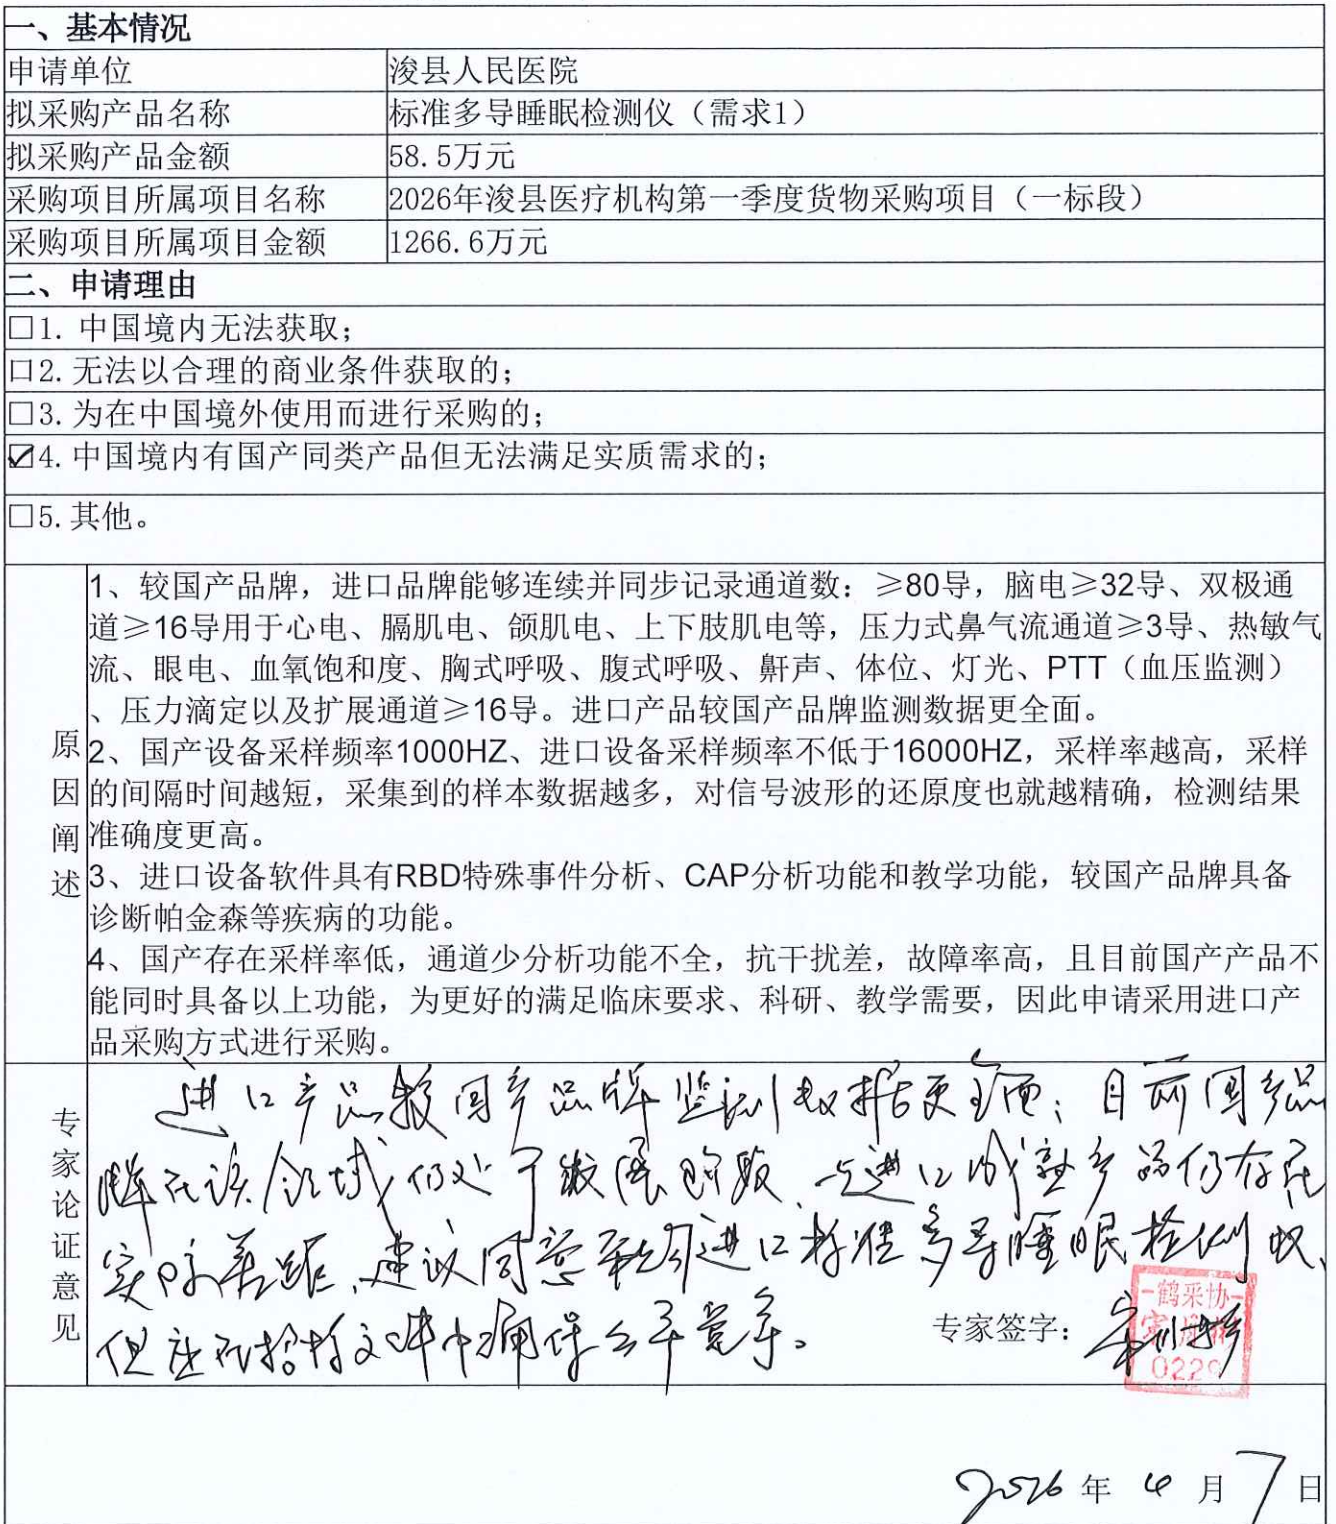 一、基本情况
申请单位 浚县人民医院
拟采购产品名称 标准多导睡眠检测仪（需求1）
拟采购产品金额 58.5万元
采购项目所属项目名称 2026年浚县医疗机构第一季度货物采购项目（一标段）
采购项目所属项目金额 1266.6万元
二、申请理由
□1. 中国境内无法获取；
□2. 无法以合理的商业条件获取的；
□3. 为在中国境外使用而进行采购的；
☑4. 中国境内有国产同类产品但无法满足实质需求的；
□5. 其他。
原因阐述
1、较国产品牌，进口品牌能够连续并同步记录通道数：≥80导，脑电≥32导、双极通
道≥16导用于心电、膈肌电、颌肌电、上下肢肌电等，压力式鼻气流通道≥3导、热敏气
流、眼电、血氧饱和度、胸式呼吸、腹式呼吸、鼾声、体位、灯光、PTT（血压监测）
、压力滴定以及扩展通道≥16导。进口产品较国产品牌监测数据更全面。
2、国产设备采样频率1000HZ、进口设备采样频率不低于16000HZ，采样率越高，采样
的间隔时间越短，采集到的样本数据越多，对信号波形的还原度也就越精确，检测结果
准确度更高。
3、进口设备软件具有RBD特殊事件分析、CAP分析功能和教学功能，较国产品牌具备
诊断帕金森等疾病的功能。
4、国产存在采样率低，通道少分析功能不全，抗干扰差，故障率高，且目前国产产品不
能同时具备以上功能，为更好的满足临床要求、科研、教学需要，因此申请采用进口产
品采购方式进行采购。
专家论证意见
进口产品较国产品牌监测数据更全面；目前国产品
牌在该领域仍处于发展阶段，与进口成熟产品仍存在
实际差距，建议同意采购进口标准多导睡眠检测仪，
但应在招标文件中确保公平竞争。
专家签字：
鹤采协
0229
2026年4月7日